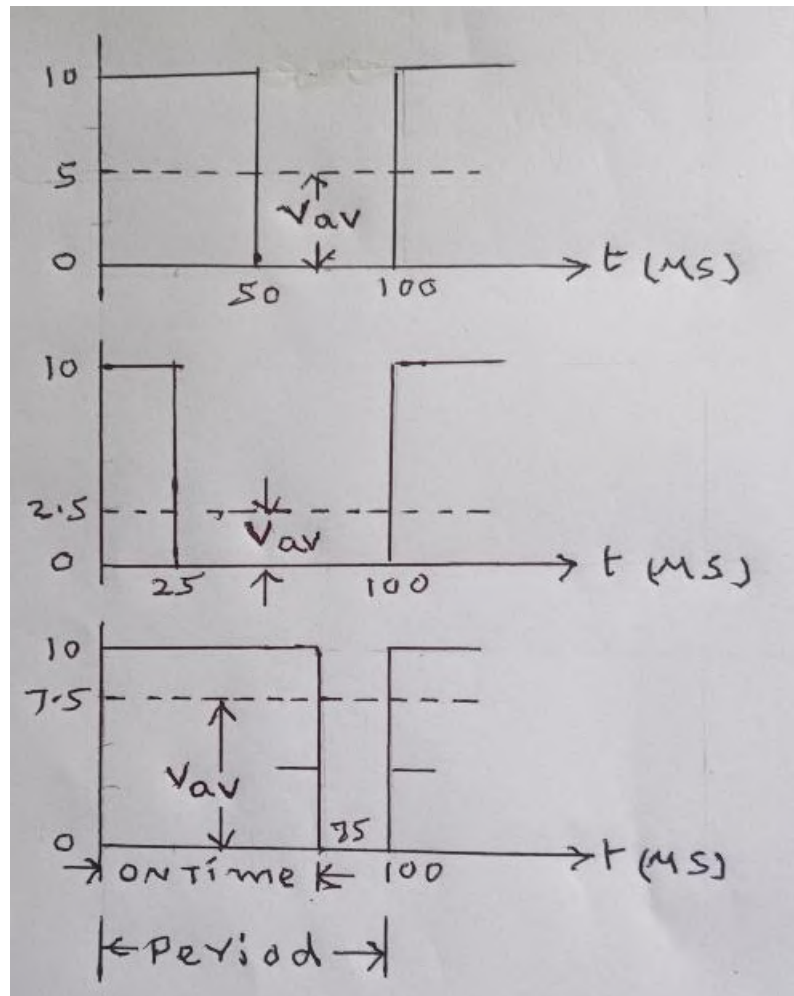 10
5
Vav
0
50 100 t (MS)
10
2.5
Vav
0
25 100 t (MS)
10
7.5
Vav
0 75
ON Time 100 t (MS)
Period